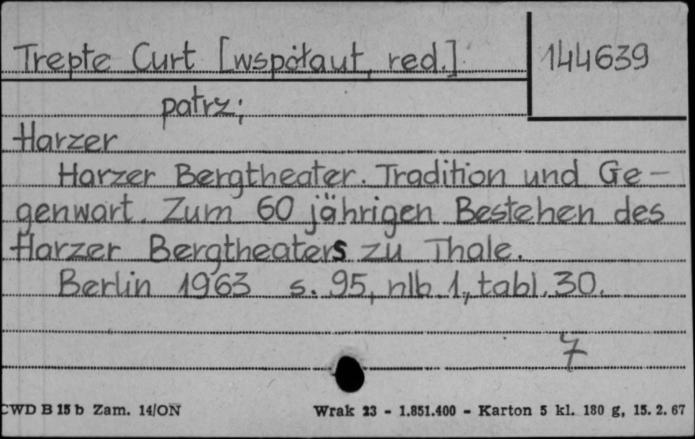 Trepte Curt [współaut, red.]
144639
patrz;
Harzer
Harzer Bergtheater. Tradition und Ge-
genwart. Zum 60 jährigen Bestehen des
Harzer Bergtheaters zu Thale.
Berlin 1963 s. 95, nlb. 1, tabl. 30.
7
CWD B 15 b Zam. 14/ON
Wrak 23 - 1.851.400 - Karton 5 kl. 180 g, 15. 2. 67